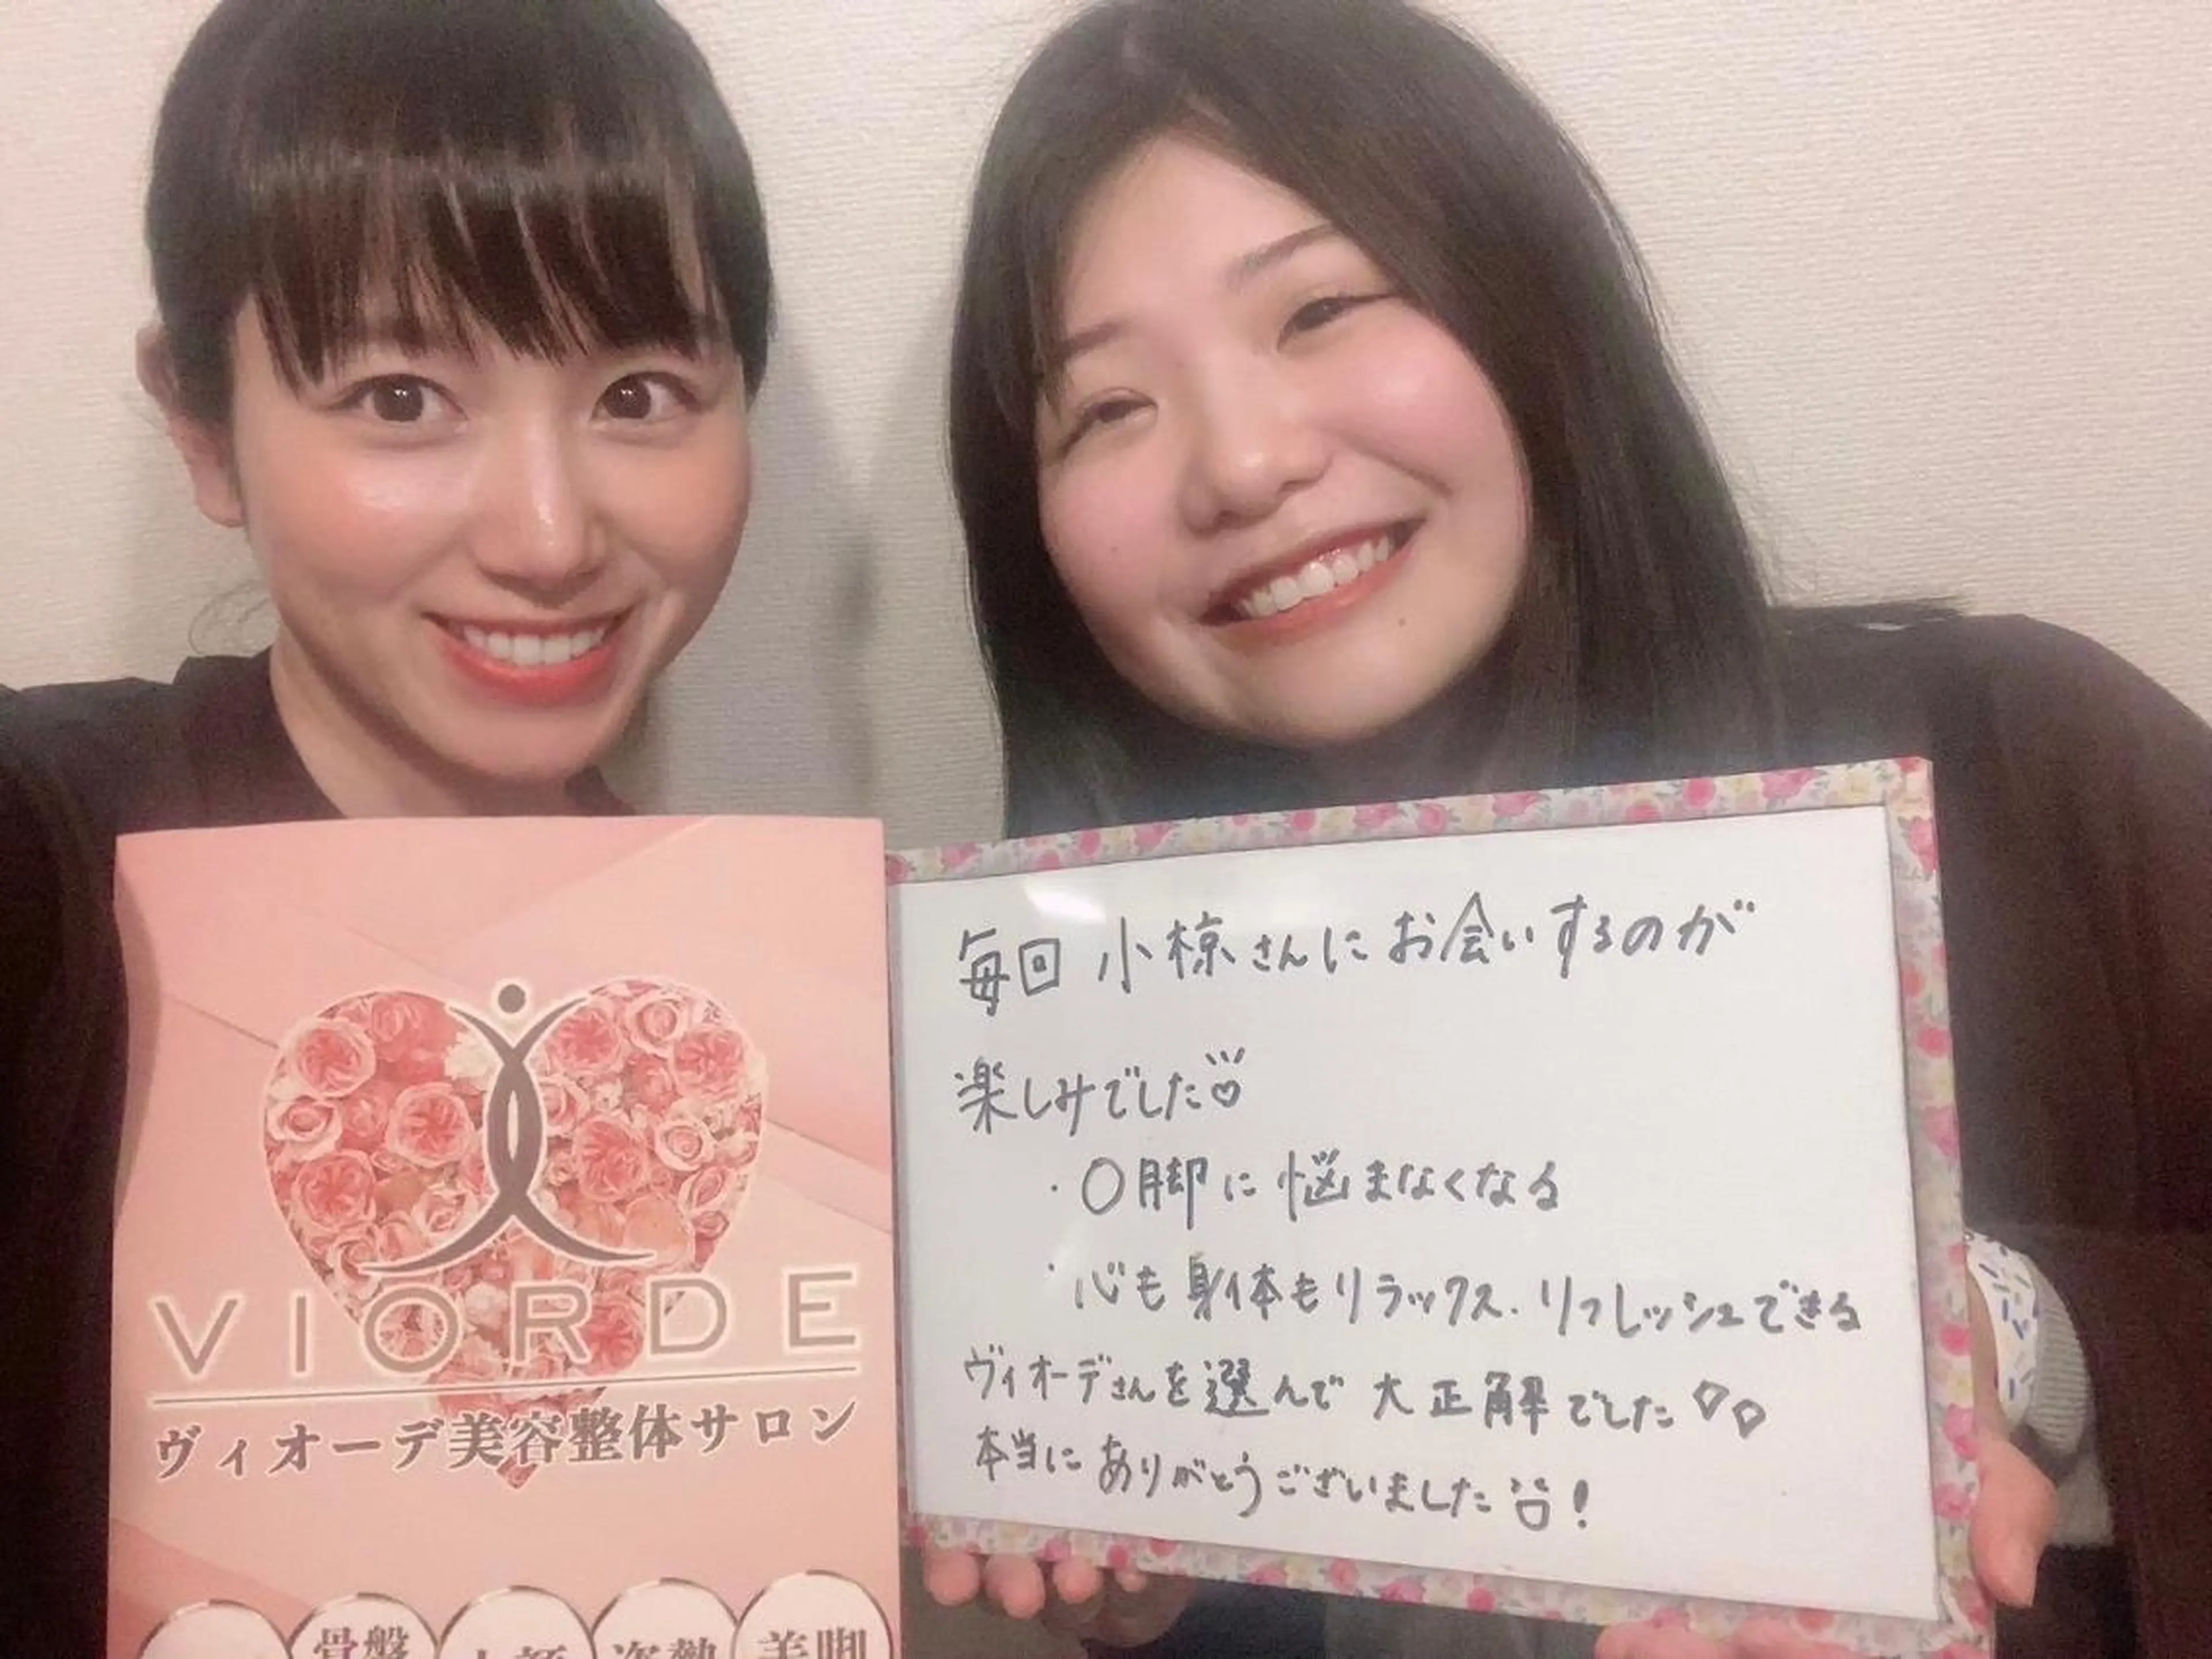 VIORDE
ヴィオーデ美容整体サロン
骨盤
小顔
姿勢
美脚
毎回 小椋さんにお会いするのが
楽しみでした♡
・O脚に悩まなくなる
・心も身体もリラックス.リフレッシュできる
ヴィオーデさんを選んで大正解でした♡♡
本当にありがとうございました!